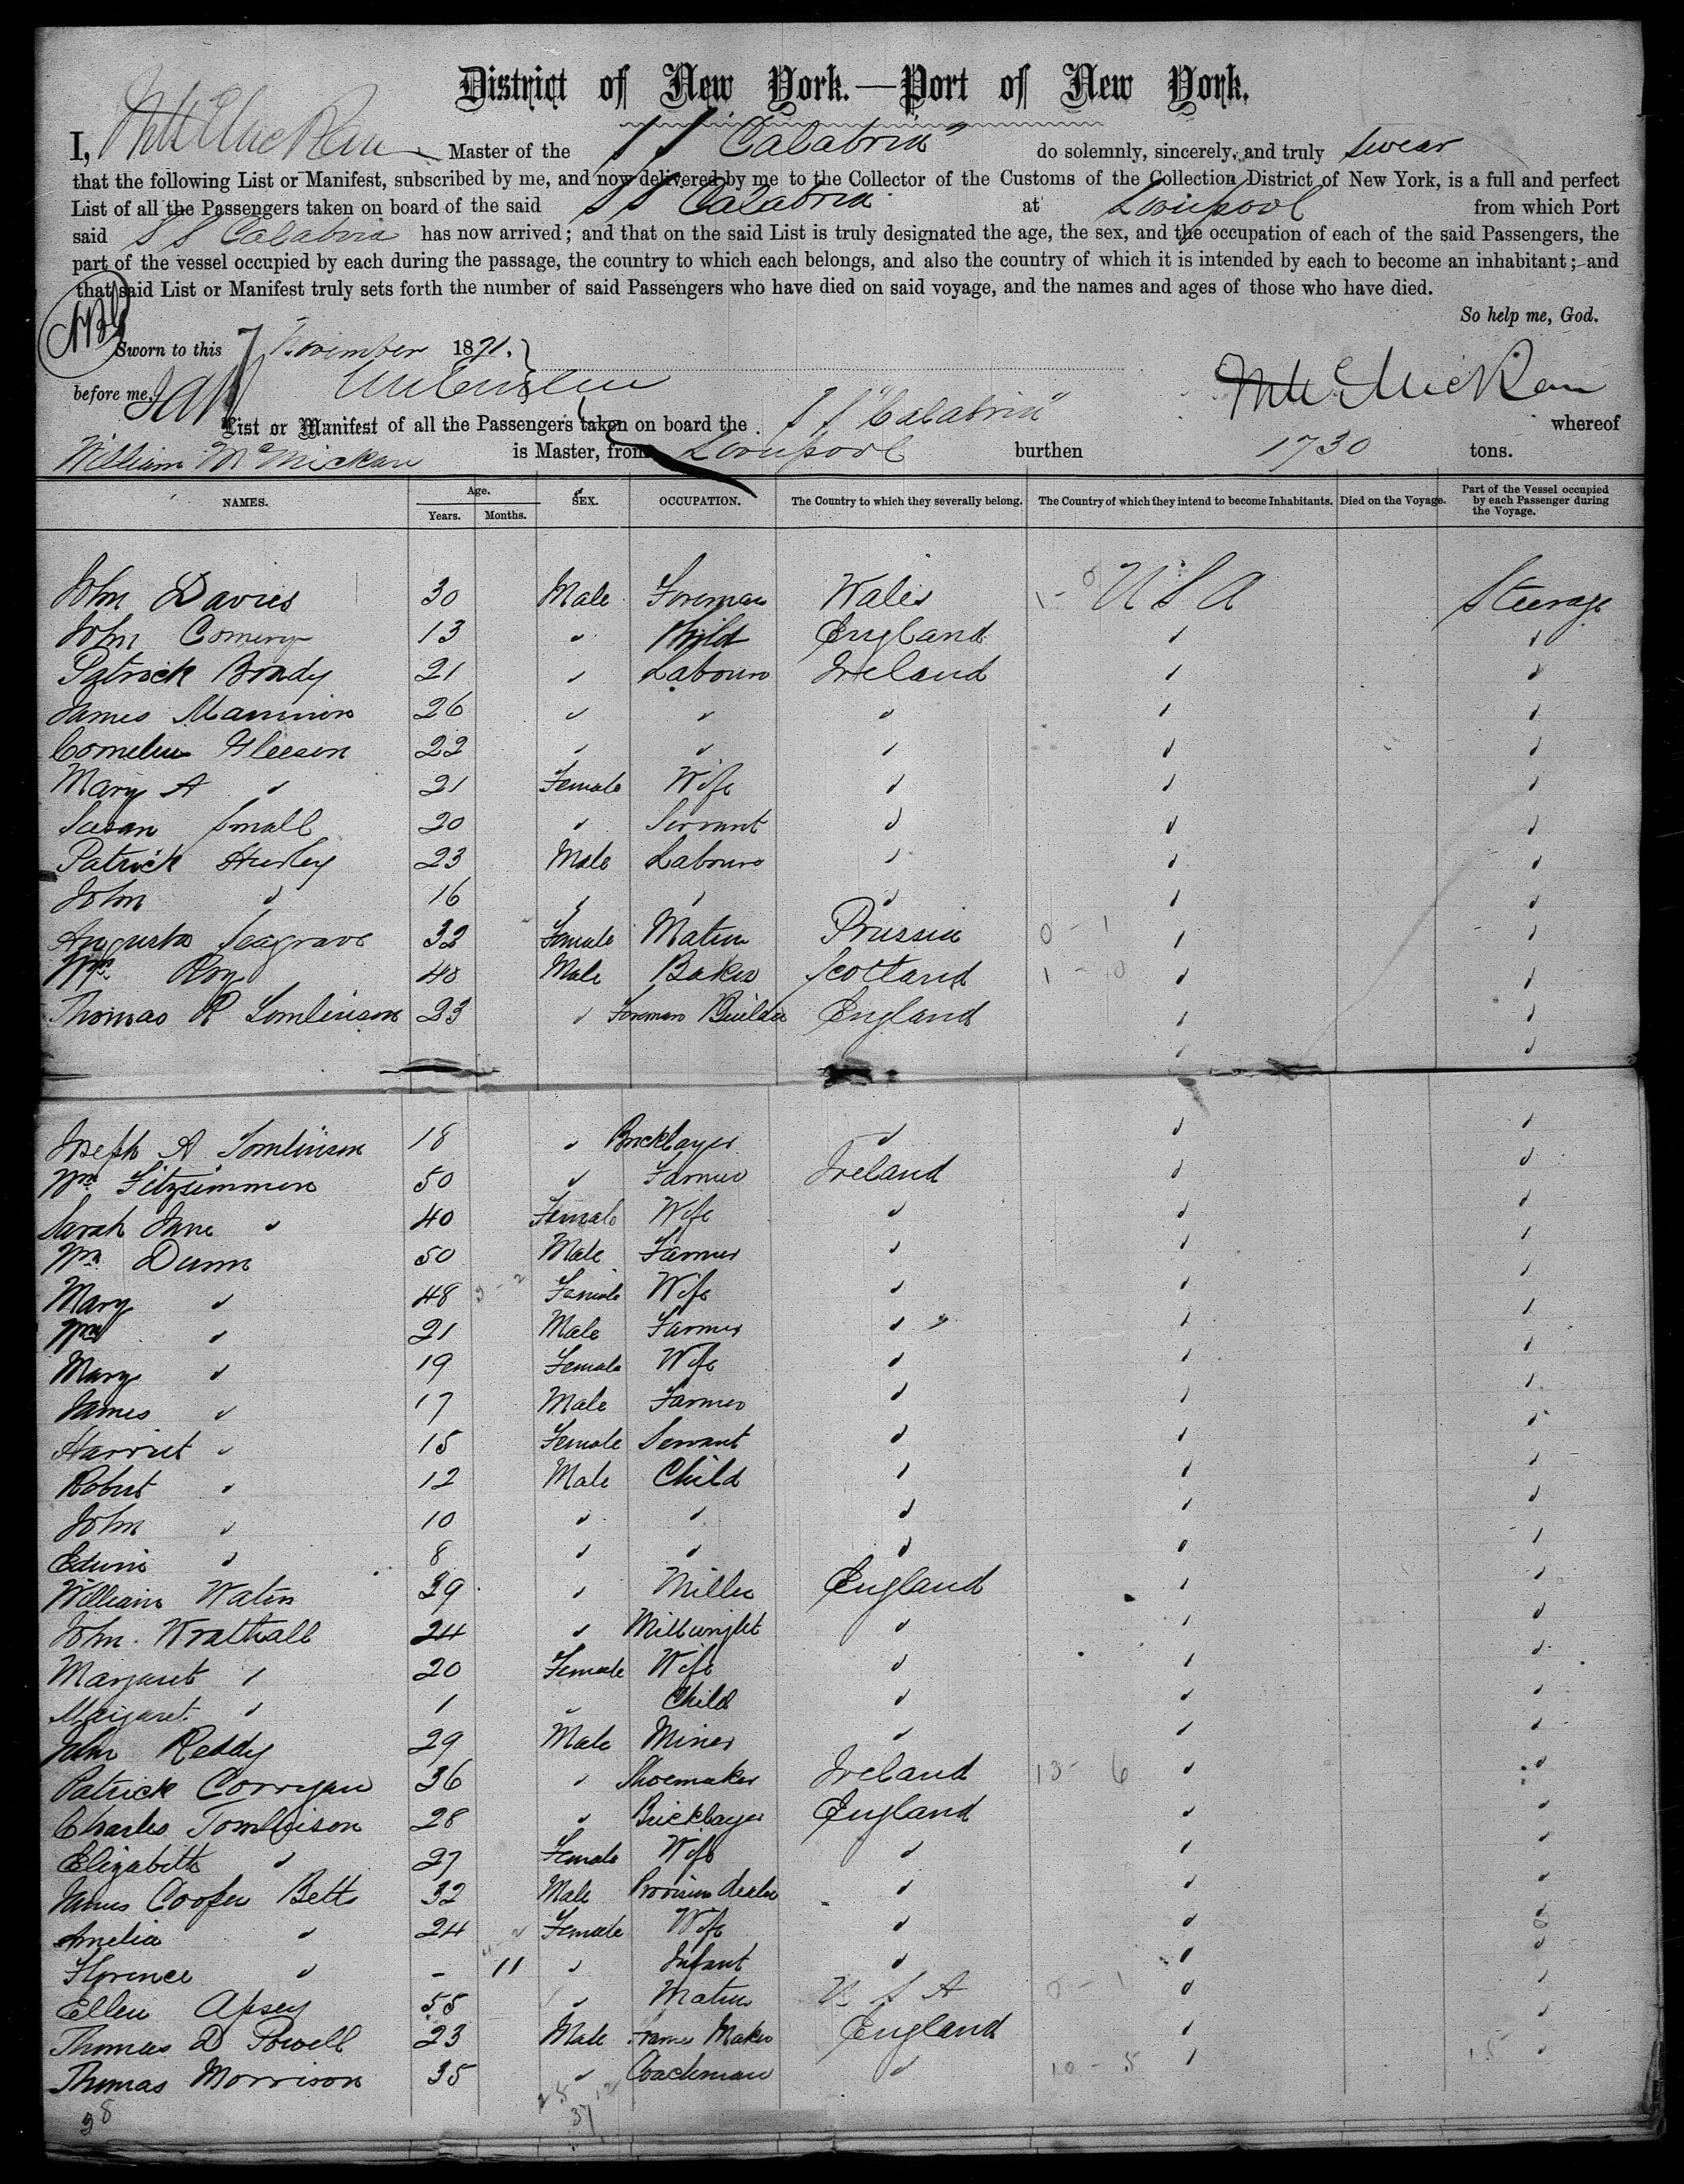 District of New York.—Port of New York.
I, Master of the S S "Calabria" do solemnly, sincerely, and truly swear
that the following List or Manifest, subscribed by me, and now delivered by me to the Collector of the Customs of the Collection District of New York, is a full and perfect
List of all the Passengers taken on board of the said S S Calabria at Liverpool from which Port
said S S Calabria has now arrived; and that on the said List is truly designated the age, the sex, and the occupation of each of the said Passengers, the
part of the vessel occupied by each during the passage, the country to which each belongs, and also the country of which it is intended by each to become an inhabitant; and
that said List or Manifest truly sets forth the number of said Passengers who have died on said voyage, and the names and ages of those who have died.
So help me, God.
Sworn to this 7 November 1871.
before me,
List or Manifest of all the Passengers taken on board the S S "Calabria" whereof
William McMickan is Master, from Liverpool burthen 1730 tons.
NAMES. Age. Years. Months. SEX. OCCUPATION. The Country to which they severally belong. The Country of which they intend to become Inhabitants. Died on the Voyage. Part of the Vessel occupied by each Passenger during the Voyage.
John Davies 30 Male Foreman Wales U S A Steerage
John 13 " Child England " "
Patrick Brady 21 " Labourer Ireland " "
James 26 " " " " "
Cornelius Gleeson 22 " " " " "
Mary A " 21 Female Wife " " "
Susan Small 20 " Servant " " "
Patrick Hurley 23 Male Labourer " " "
John " 16 " " " " "
Augusta Seagrave 32 Female Matron Prussia 0 - 1 " "
Wm Roy 48 Male Baker Scotland 1 - 10 " "
Thomas R Tomlinson 23 " Foreman Builder England " "
" "
Joseph A Tomlinson 18 " Bricklayer " " "
Wm Fitzsimmon 50 " Farmer Ireland " "
Sarah Jane " 40 Female Wife " " "
Wm Dunn 50 Male Farmer " " "
Mary " 48 Female Wife " " "
Wm " 21 Male Farmer " " "
Mary " 19 Female Wife " " "
James " 17 Male Farmer " " "
Harriet " 15 Female Servant " " "
Robert " 12 Male Child " " "
John " 10 " " " " "
Edwin " 8 " " " " "
William Waters 39 " Miller England " "
John Wrathall 24 " Millwright " " "
Margaret " 20 Female Wife " " "
Margaret " 1 " Child " " "
John Reddy 29 Male Miner " " "
Patrick Corrigan 36 " Shoemaker Ireland 13 - 6 " "
Charles Tomlinson 28 " Bricklayer England " "
Elizabeth " 27 Female Wife " " "
James Cooper Betts 32 Male Provision dealer " " "
Amelia " 24 Female Wife " " "
Florence " - 11 " Infant " " "
Ellen Apsey 55 " Matron U S A 0 - 1 " "
Thomas D Powell 23 Male Frame Maker England " "
Thomas Morrison 35 " Coachman " 10 - 5 " 15 "
38